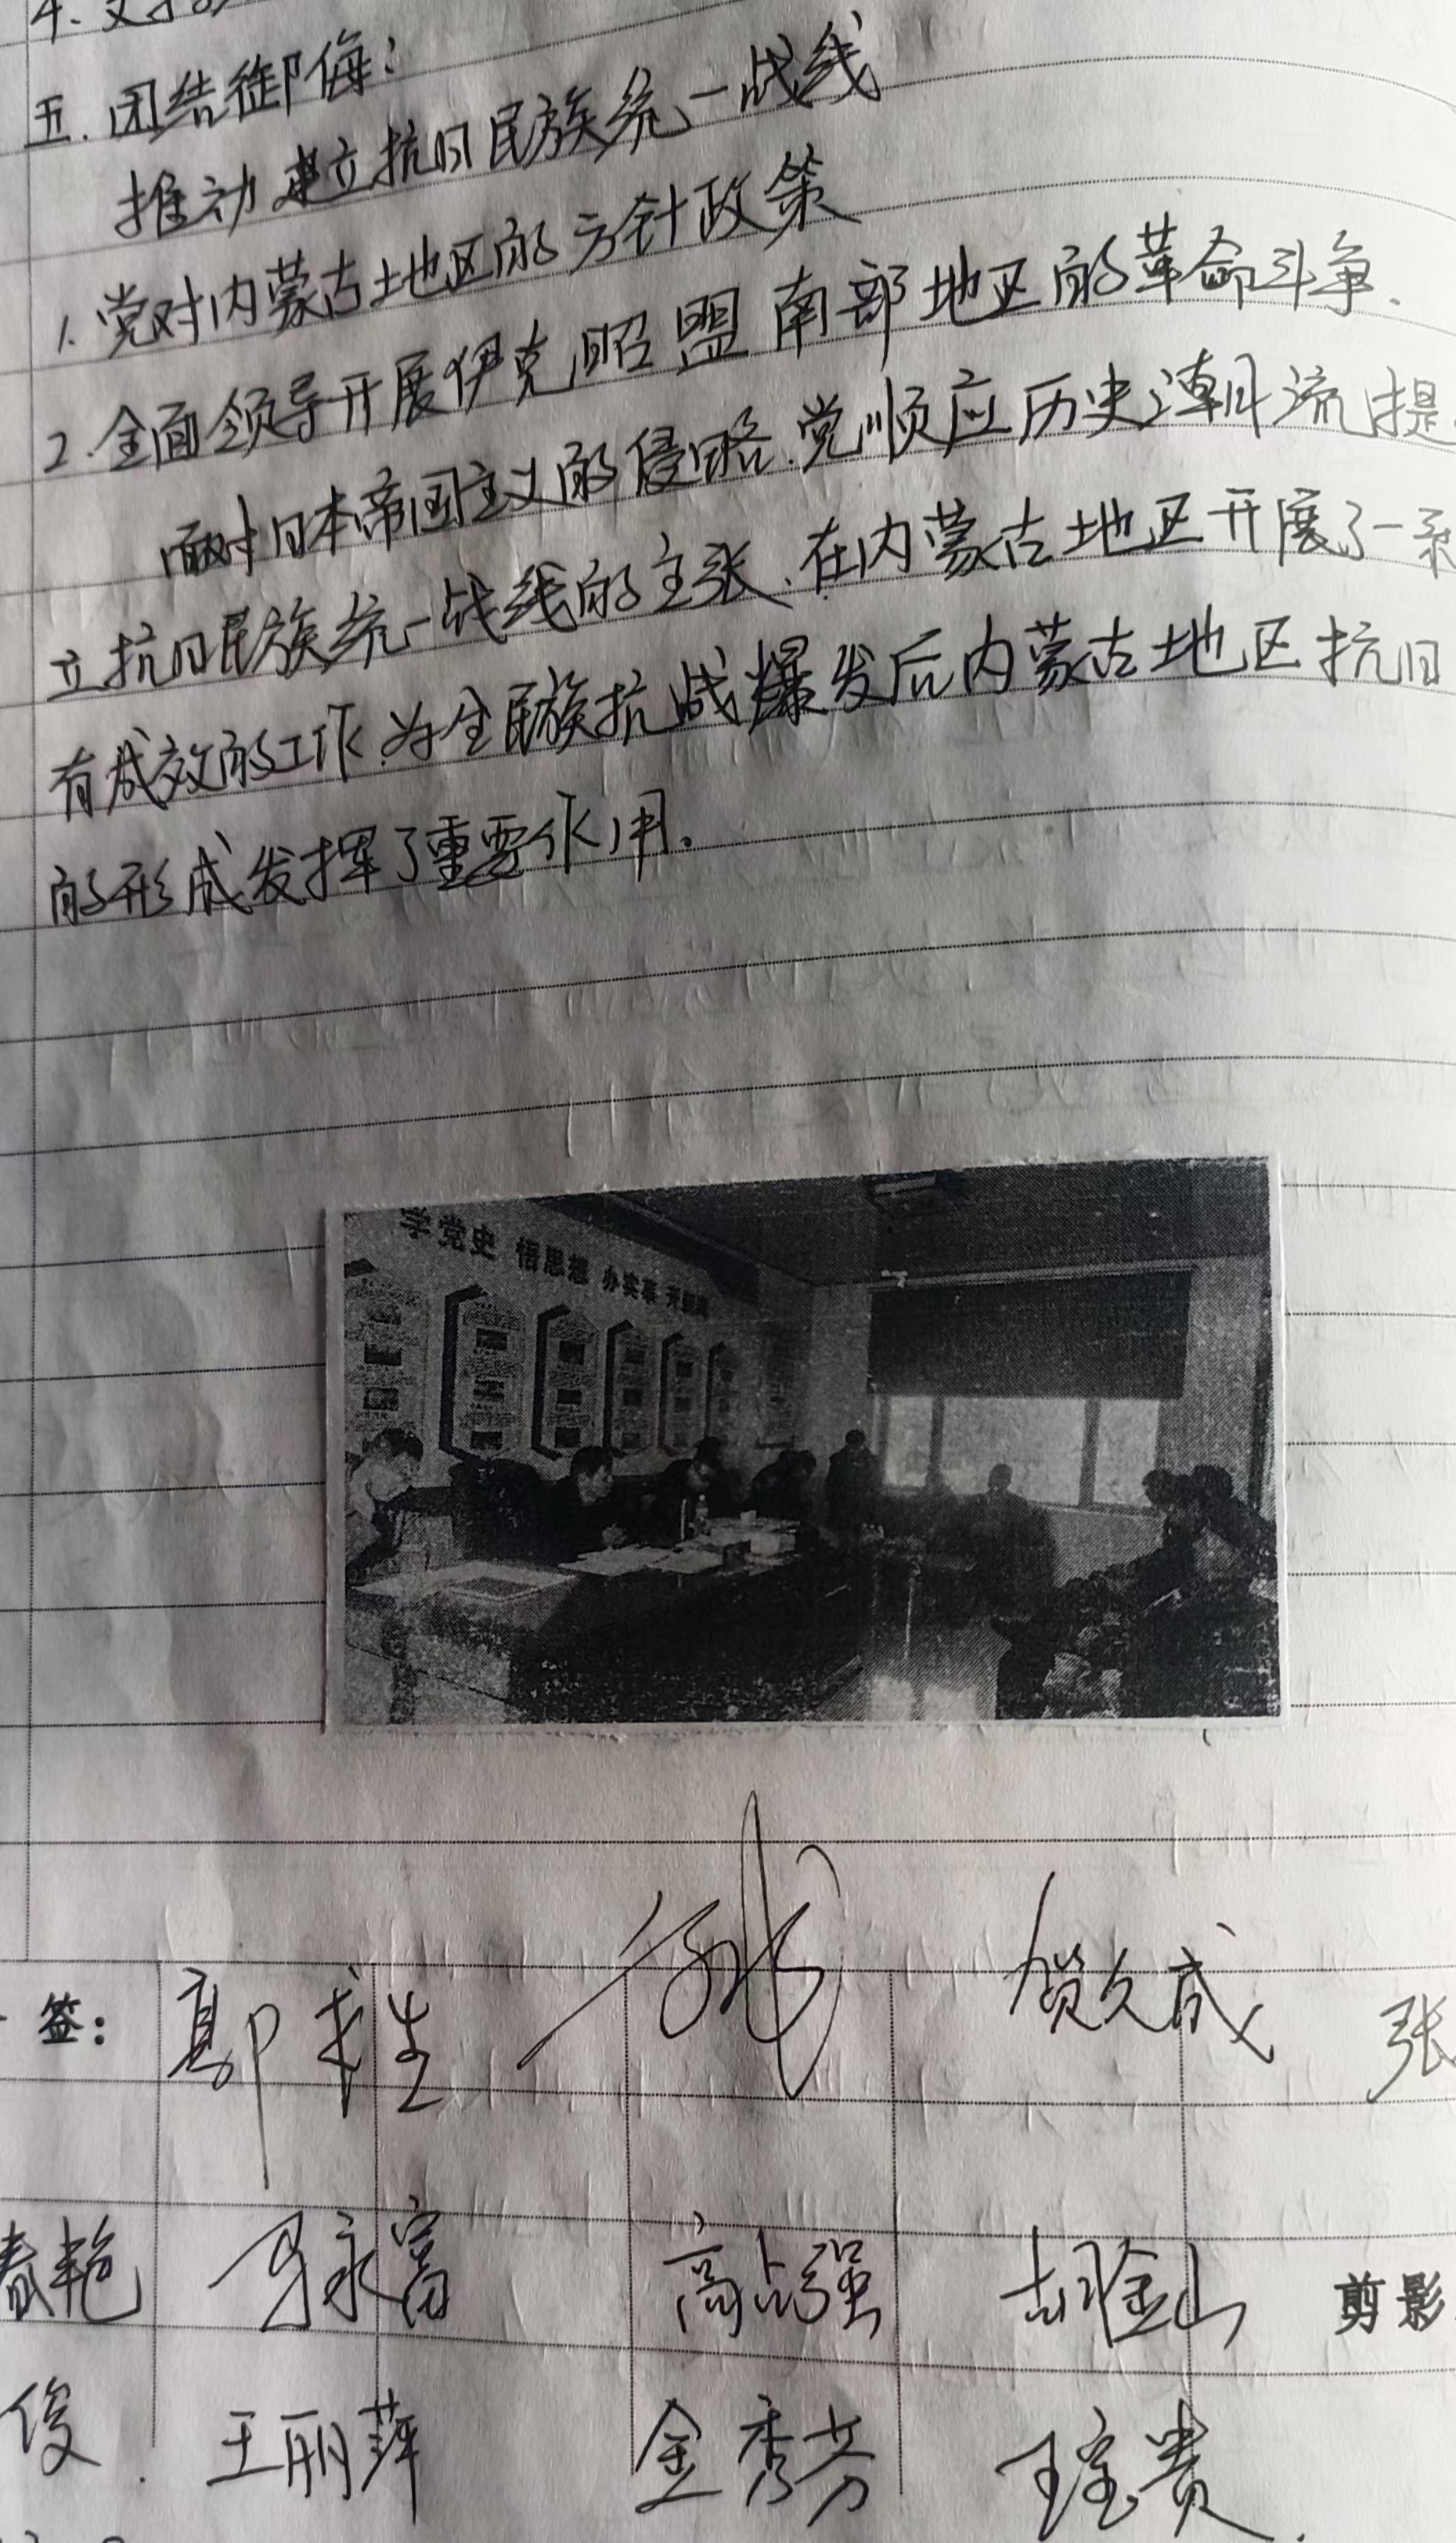 4.
五.团结御侮:
推动建立抗日民族统一战线
1.党对内蒙古地区的方针政策
2.全面领导开展伊克昭盟南部地区的革命斗争.
面对日本帝国主义的侵略.党顺应历史潮流提
立抗日民族统一战线的主张.在内蒙古地区开展了一系
有成效的工作.为全民族抗战爆发后内蒙古地区抗日
的形成发挥了重要作用.
学党史 悟思想 办实事
签: 贺久成 张
春艳 马永富 高占强 胡金山 剪影
俊. 王丽萍 金秀芳 王宝贵